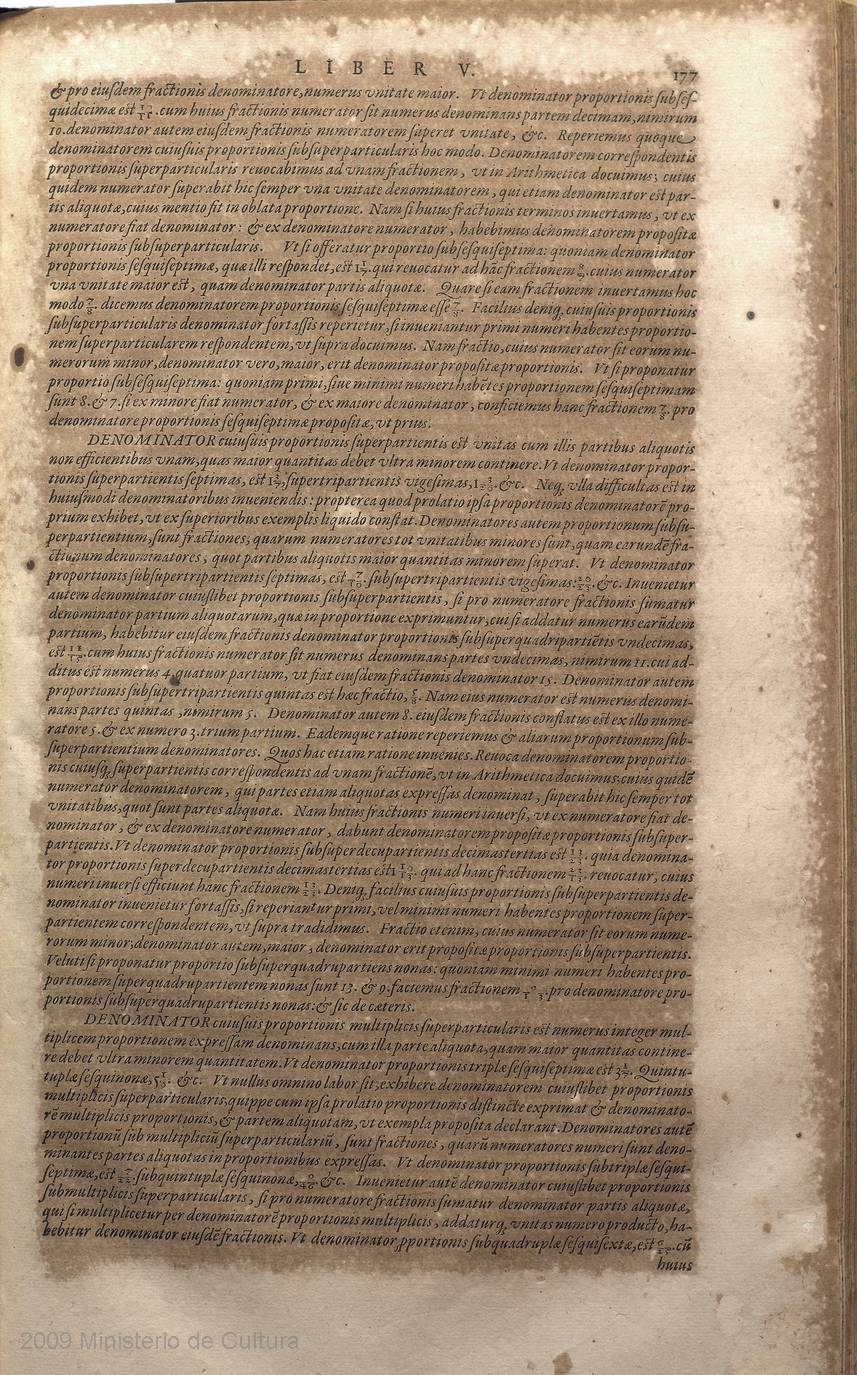 LIBER V. 177
& pro eiusdem fractionis denominatore, numerus vnitate maior. Vt denominator proportionis subses-
quidecimæ est 10/11. cum huius fractionis numerator sit numerus denominans partem decimam, nimirum
10. denominator autem eiusdem fractionis numeratorem superet vnitate, &c. Reperiemus quoque
denominatorem cuiusuis proportionis subsuperparticularis hoc modo. Denominatorem correspondentis
proportionis superparticularis reuocabimus ad vnam fractionem, vt in Arithmetica docuimus; cuius
quidem numerator superabit hic semper vna vnitate denominatorem, qui etiam denominator est par-
tis aliquotæ, cuius mentio fit in oblata proportione. Nam si huius fractionis terminos inuertamus, vt ex
numeratore fiat denominator: & ex denominatore numerator, habebimus denominatorem propositæ
proportionis subsuperparticularis. Vt si offeratur proportio subsesquiseptima: quoniam denominator
proportionis sesquiseptimæ, quæ illi respondet, est 1 1/7. qui reuocatur ad hãc fractionem 8/7. cuius numerator
vna vnitate maior est, quam denominator partis aliquotæ. Quare si eam fractionem inuertamus hoc
modo 7/8. dicemus denominatorem proportionis sesquiseptimæ esse 7/8. Facilius deniq; cuiusuis proportionis
subsuperparticularis denominator fortassis reperietur, si inueniantur primi numeri habentes proportio-
nem superparticularem respondentem, vt supra docuimus. Nam fractio, cuius numerator sit eorum nu-
merorum minor, denominator vero, maior, erit denominator propositæ proportionis. Vt si proponatur
proportio subsesquiseptima: quoniam primi, siue minimi numeri habẽtes proportionem sesquiseptimam
sunt 8. & 7. si ex minore fiat numerator, & ex maiore denominator, conficiemus hanc fractionem 7/8. pro
denominatore proportionis sesquiseptimæ propositæ, vt prius.
DENOMINATOR cuiusuis proportionis superpartientis est vnitas cum illis partibus aliquotis
non efficientibus vnam, quas maior quantitas debet vltra minorem continere. Vt denominator propor-
tionis superpartientis septimas, est 1 3/7, supertripartientis vigesimas, 1 3/20. &c. Neq; vlla difficultas est in
huiusmodi denominatoribus inueniendis: propterea quod prolatio ipsa proportionis denominatorẽ pro-
prium exhibet, vt ex superioribus exemplis liquido constat. Denominatores autem proportionum subsu-
perpartientium, sunt fractiones; quarum numeratores tot vnitatibus minores sunt, quam earundẽ fra-
ctionum denominatores, quot partibus aliquotis maior quantitas minorem superat. Vt denominator
proportionis subsupertripartientis septimas, est 7/10. subsupertripartientis vigesimas: 20/23. &c. Inuenietur
autem denominator cuiuslibet proportionis subsuperpartientis, si pro numeratore fractionis sumatur
denominator partium aliquotarum, quæ in proportione exprimuntur, cui si addatur numerus earũdem
partium, habebitur eiusdem fractionis denominator proportionis subsuperquadripartiẽtis vndecimas,
est 11/15. cum huius fractionis numerator sit numerus denominans partes vndecimas, nimirum 11. cui ad-
ditus est numerus 4. quatuor partium, vt fiat eiusdem fractionis denominator 15. Denominator autem
proportionis subsupertripartientis quintas est hæc fractio, 5/8. Nam eius numerator est numerus denomi-
nans partes quintas, nimirum 5. Denominator autem 8. eiusdem fractionis conflatus est ex illo nume-
ratore 5. & ex numero 3. trium partium. Eademque ratione reperiemus & aliarum proportionum sub-
superpartientium denominatores. Quos hac etiam ratione inuenies. Reuoca denominatorem proportio-
nis cuiusq; superpartientis correspondentis ad vnam fractionẽ, vt in Arithmetica docuimus; cuius quidẽ
numerator denominatorem, qui partes etiam aliquotas expressas denominat, superabit hic semper tot
vnitatibus, quot sunt partes aliquotæ. Nam huius fractionis numeri inuersi, vt ex numeratore fiat de-
nominator, & ex denominatore numerator, dabunt denominatorem propositæ proportionis subsuper-
partientis. Vt denominator proportionis subsuperdecupartientis decimastertias est 13/23. quia denomina-
tor proportionis superdecupartientis decimastertias est 1 10/13. qui ad hanc fractionem 23/13. reuocatur, cuius
numeri inuersi efficiunt hanc fractionem 13/23. Deniq; facilius cuiusuis proportionis subsuperpartientis de-
nominator inuenietur fortassis, si reperiantur primi, vel minimi numeri habentes proportionem super-
partientem correspondentem, vt supra tradidimus. Fractio etenim, cuius numerator sit eorum nume-
rorum minor, denominator autem, maior, denominator erit propositæ proportionis subsuperpartientis.
Veluti si proponatur proportio subsuperquadrupartiens nonas: quoniam minimi numeri habentes pro-
portionem superquadrupartientem nonas sunt 13. & 9. faciemus fractionem 9/13. pro denominatore pro-
portionis subsuperquadrupartientis nonas: & sic de cæteris.
DENOMINATOR cuiusuis proportionis multiplicis superparticularis est numerus integer mul-
tiplicem proportionem expressam denominans, cum illa parte aliquota, quam maior quantitas contine-
re debet vltra minorem quantitatem. Vt denominator proportionis triplæ sesquiseptimæ est 3 1/7. Quintu-
tuplæ sesquinonæ, 5 1/9. &c. Vt nullus omnino labor sit, exhibere denominatorem cuiuslibet proportionis
multiplicis superparticularis, quippe cum ipsa prolatio proportionis distincte exprimat & denominato-
rẽ multiplicis proportionis, & partem aliquotam, vt exempla proposita declarant. Denominatores autẽ
proportionũ sub multipliciũ superparticulariũ, sunt fractiones, quarũ numeratores numeri sunt deno-
minantes partes aliquotas in proportionibus expressas. Vt denominator proportionis subtriplæ sesqui-
septimæ, est 7/22. subquintuplæ sesquinonæ, 9/46. &c. Inuenietur autẽ denominator cuiuslibet proportionis
submultiplicis superparticularis, si pro numeratore fractionis sumatur denominator partis aliquotæ,
qui si multiplicetur per denominatorẽ proportionis multiplicis, addaturq; vnitas numero producto, ha-
bebitur denominator eiusdẽ fractionis. Vt denominator ꝓportionis subquadruplæ sesquisextæ, est 6/25. cũ
huius
2009 Ministerio de Cultura